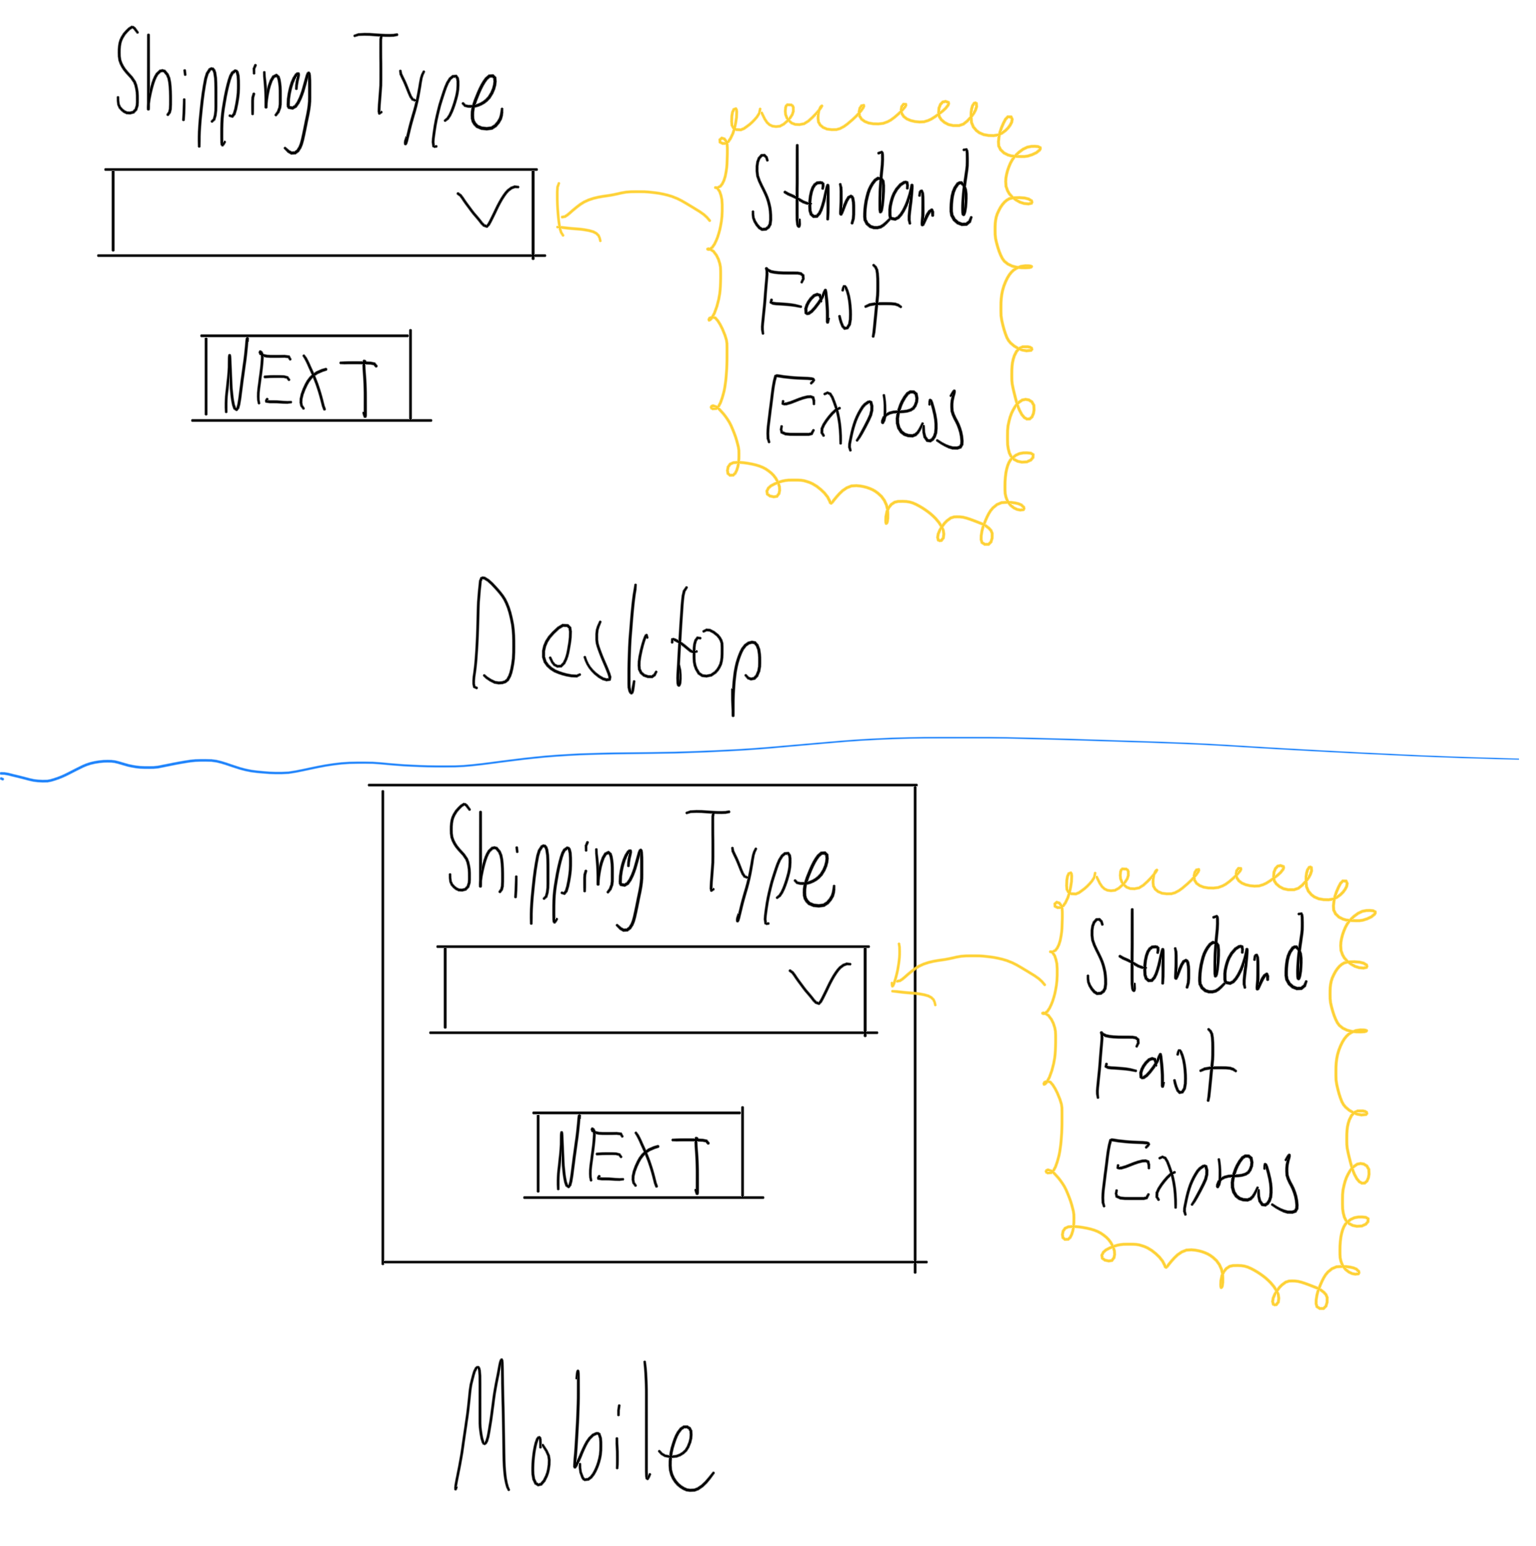 Shipping Type
NEXT
Standard
Fast
Express
Desktop
Shipping Type
NEXT
Standard
Fast
Express
Mobile